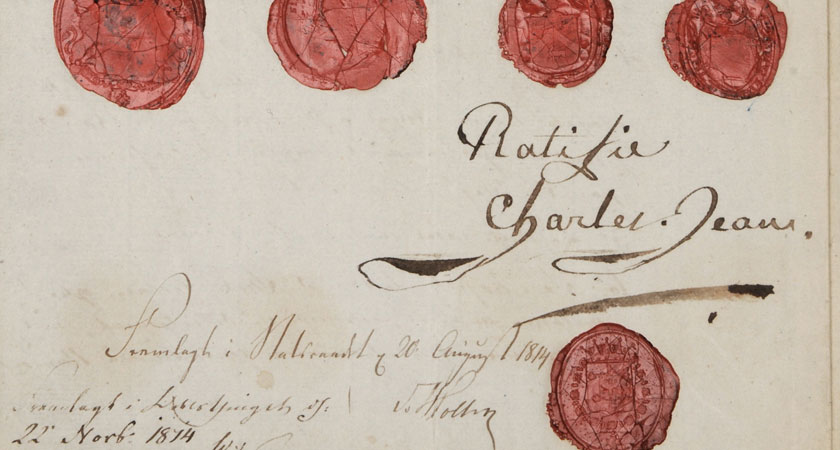 Ratifie
Charles Jean.
Fremlagt i Statsraadet d 20 August 1814
Fremlagt i
22 Novb: 1814